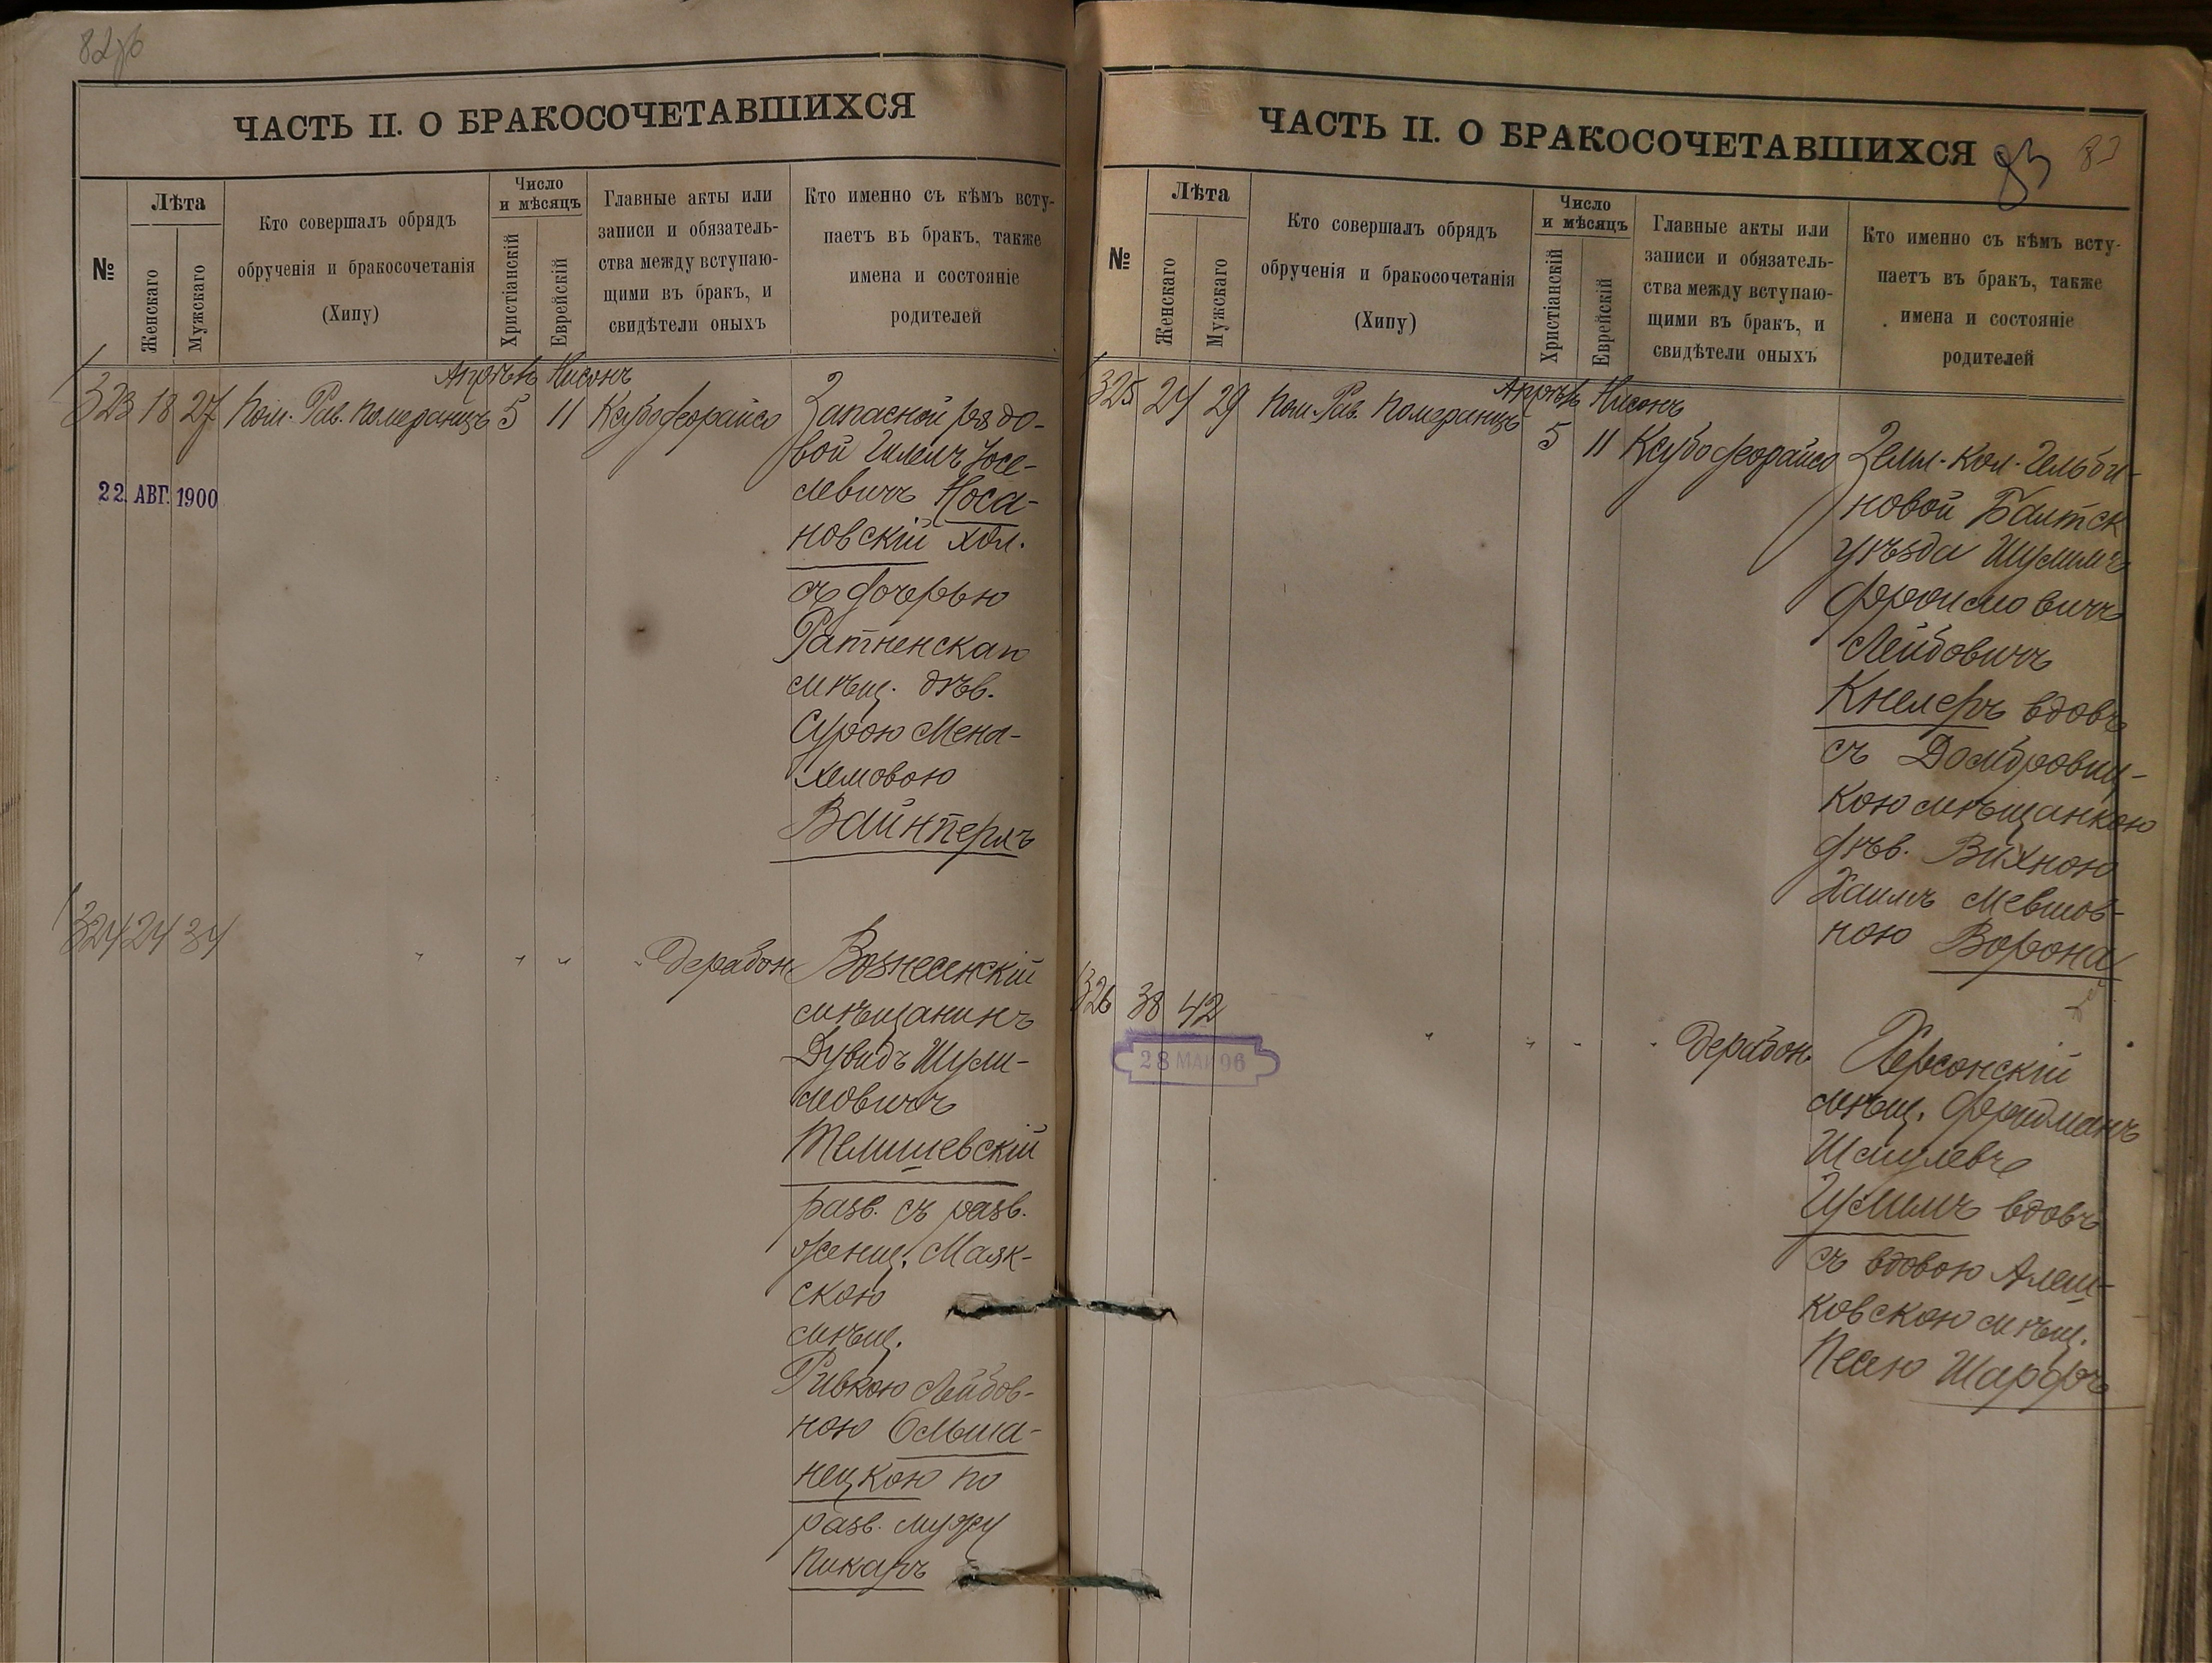 82об
ЧАСТЬ II. О БРАКОСОЧЕТАВШИХСЯ
№
Лѣта
Женскаго
Мужскаго
Кто совершалъ обрядъ
обрученія и бракосочетанія
(Хипу)
Число
и мѣсяцъ
Христіанскій
Еврейскій
Главные акты или
записи и обязатель-
ства между вступаю-
щими въ бракъ, и
свидѣтели оныхъ
Кто именно съ кѣмъ всту-
паетъ въ бракъ, также
имена и состояніе
родителей
Апрѣль Нисонъ
323 18 27 Пом. Рав. Померанцъ 5 11 Ксубо деорайсо Запасной рядо-
вой Гилелъ Іосе-
левичъ Носа-
новскій хол.
22 АВГ. 1900
съ дочерью
Ратненскаго
мѣщ. дѣв.
Сурою Мена-
хемовою
Вайнперлъ
324 24 34 " " " " Дерабон Вознесенскій
мѣщанинъ
Дувидъ Шули-
мовичъ
Телишевскій
разв. съ разв.
женщ. Маяк-
скою
мѣщ.
Ривкою Лейбов-
ною Ольша-
нецкою по
разв. мужу
Пикаръ
ЧАСТЬ II. О БРАКОСОЧЕТАВШИХСЯ
83 83
№
Лѣта
Женскаго
Мужскаго
Кто совершалъ обрядъ
обрученія и бракосочетанія
(Хипу)
Число
и мѣсяцъ
Христіанскій
Еврейскій
Главные акты или
записи и обязатель-
ства между вступаю-
щими въ бракъ, и
свидѣтели оныхъ
Кто именно съ кѣмъ всту-
паетъ въ бракъ, также
имена и состояніе
родителей
Апрѣль Нисонъ
325 24 29 Пом. Рав. Померанцъ 5 11 Ксубо деорайсо Земл. Кол. Гельби-
новой Балтск
уѣзда Шулимъ
Фроимовичъ
Лейбовичъ
Кнелеръ вдовъ
съ Домбровиц-
кою мѣщанкою
дѣв. Вихною
Хаимъ Мевшов-
ною Ворона
326 38 42 " " " " Дерабон Херсонскій
28 МАР 96
мѣщ. Фроидманъ
Шмулевъ
вдовъ
съ вдовою Алеш-
ковскою мѣщ.
Песею Шарфъ